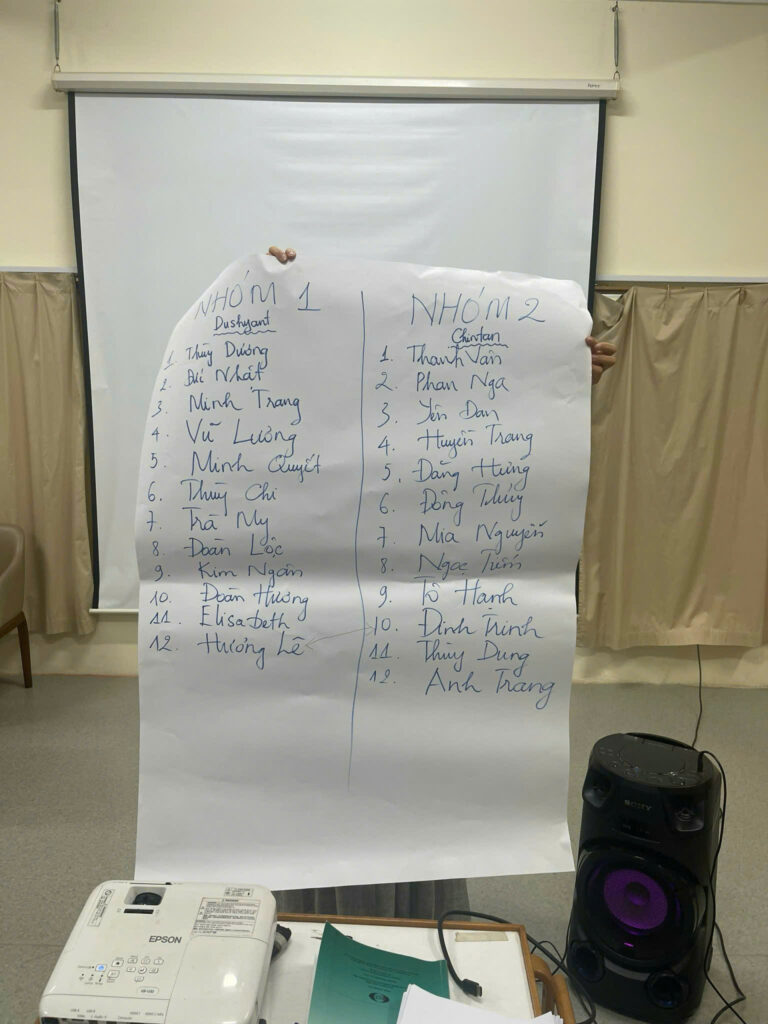 NHÓM 1
Dushyant
1. Thùy Dương
2. Nhất
3. Minh Trang
4. Vũ Lương
5. Minh Quyết
6. Thùy Chi
7. Trà My
8. Đoàn Lộc
9. Kim Ngân
10. Đoàn Hương
11. Elisabeth
12. Hương Lê
NHÓM 2
Chintan
1. Thanh Vân
2. Phan Nga
3. Yên Đan
4. Huyền Trang
5. Đăng Hưng
6. Đông Thủy
7. Mia Nguyễn
8. Ngọc
9. Tô Hạnh
10. Đinh Trinh
11. Thùy Dung
12. Anh Trang
EPSON
SONY